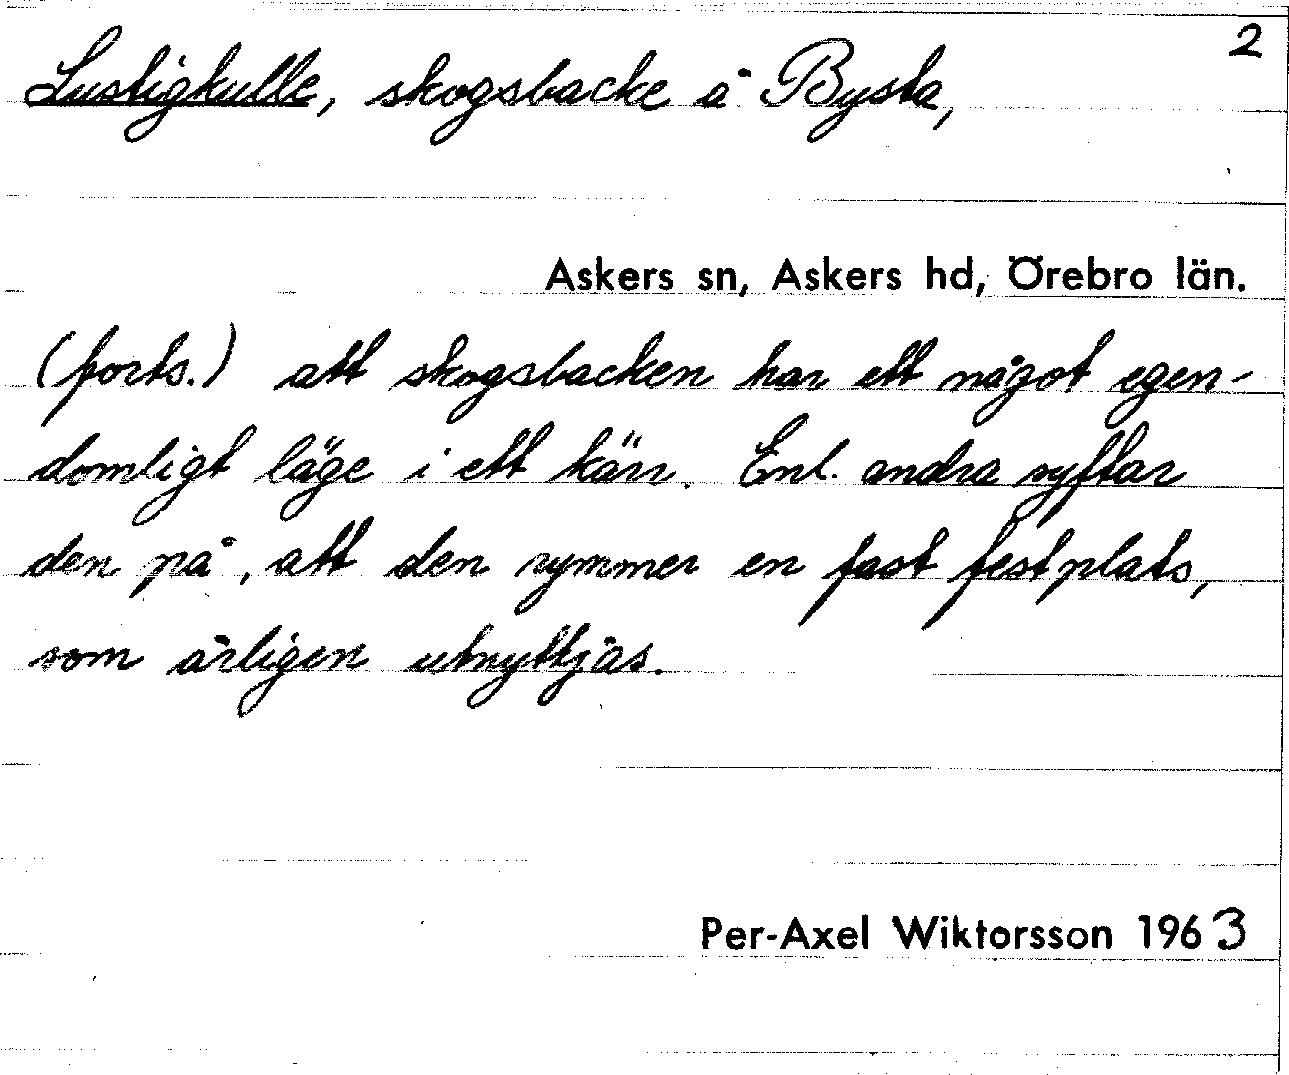 2
Lustigkulle, skogsbacke å Bysta,
Askers sn, Askers hd, Örebro län.
(forts.) att skogsbacken har ett något egen-
domligt läge i ett kärr. Enl. andra syftar
den på, att den rymmer en fast festplats,
som årligen utnyttjas.
Per-Axel Wiktorsson 1963